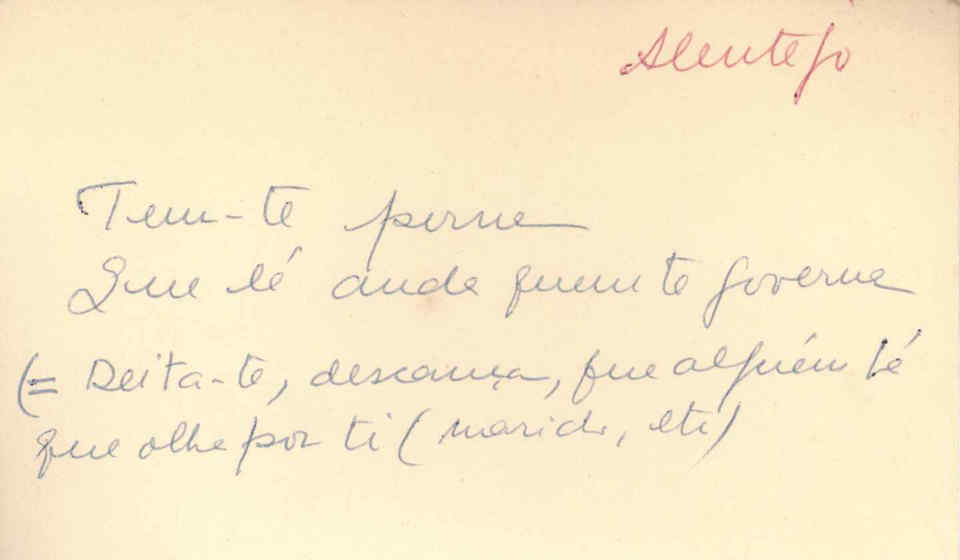 Alentejo
Tem-te perna
Que lá anda quem te governa
(= Deita-te, descança, que alguém há
que olhe por ti (marido, etc)